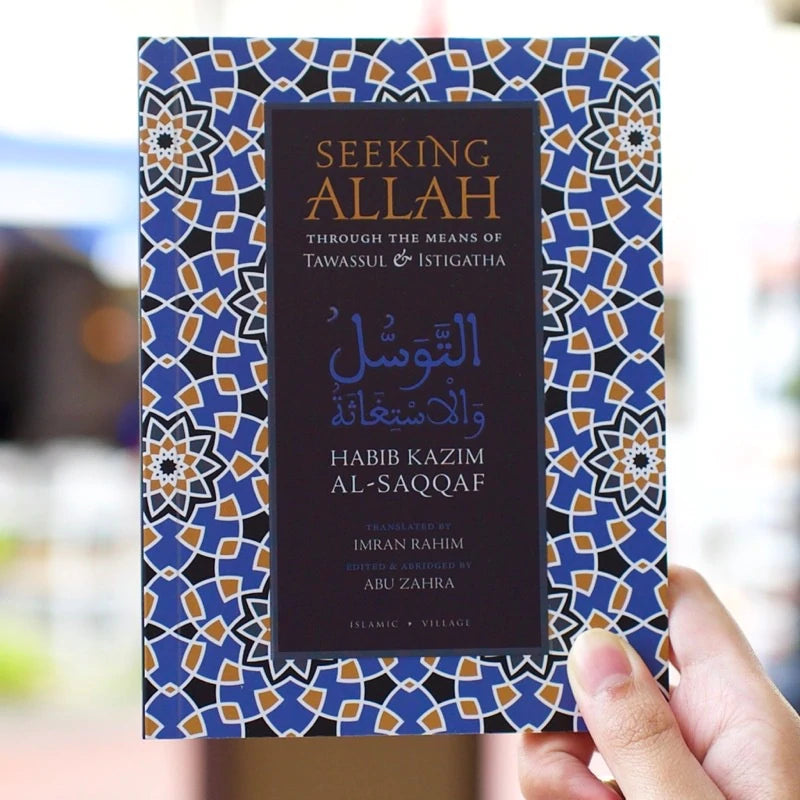 SEEKING
ALLAH
THROUGH THE MEANS OF
TAWASSUL & ISTIGATHA
التَّوَسُّلُ
وَالْاسْتِغَاثَةُ
HABIB KAZIM
AL-SAQQAF
TRANSLATED BY
IMRAN RAHIM
EDITED & ABRIDGED BY
ABU ZAHRA
ISLAMIC • VILLAGE